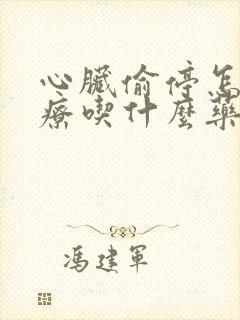 心臟偷停怎
療喫什麼藥
馮建軍